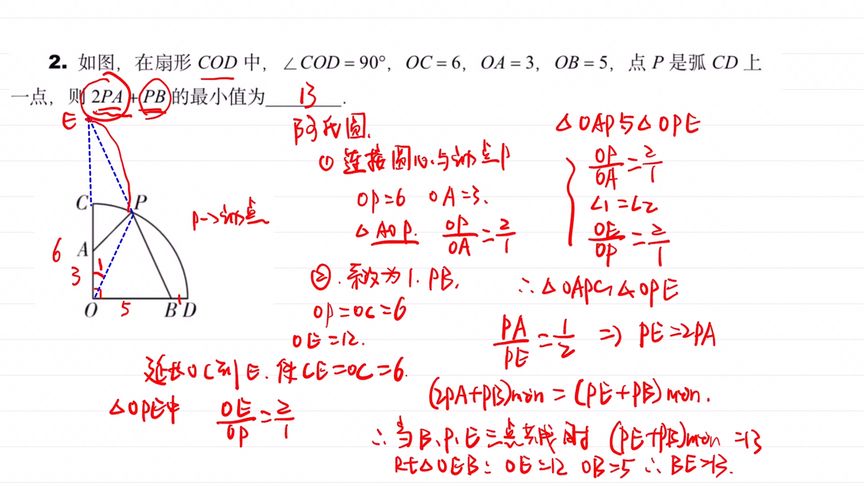 2. 如图，在扇形 COD 中，∠COD = 90°，OC = 6，OA = 3，OB = 5，点 P 是弧 CD 上
一点，则 2PA + PB 的最小值为 13 .
E
C
P
A
O
B D
6
3
1
5
P→动点
阿氏圆.
① 连接圆心与动点P
OP=6 OA=3.
△AOP. OP/OA=2/1
②. 系数为1. PB,
OP=OC=6
OE=12.
延长OC到E. 使CE=OC=6.
△OPE中 OE/OP=2/1
△OAP与△OPE
OP/OA=2/1
∠1=∠2
OE/OP=2/1
∴△OAP∽△OPE
PA/PE=1/2 ⇒ PE=2PA
(2PA+PB)min = (PE+PB)min.
∴当B、P、E三点共线时 (PE+PB)min =13
Rt△OEB: OE=12 OB=5 ∴BE=13.